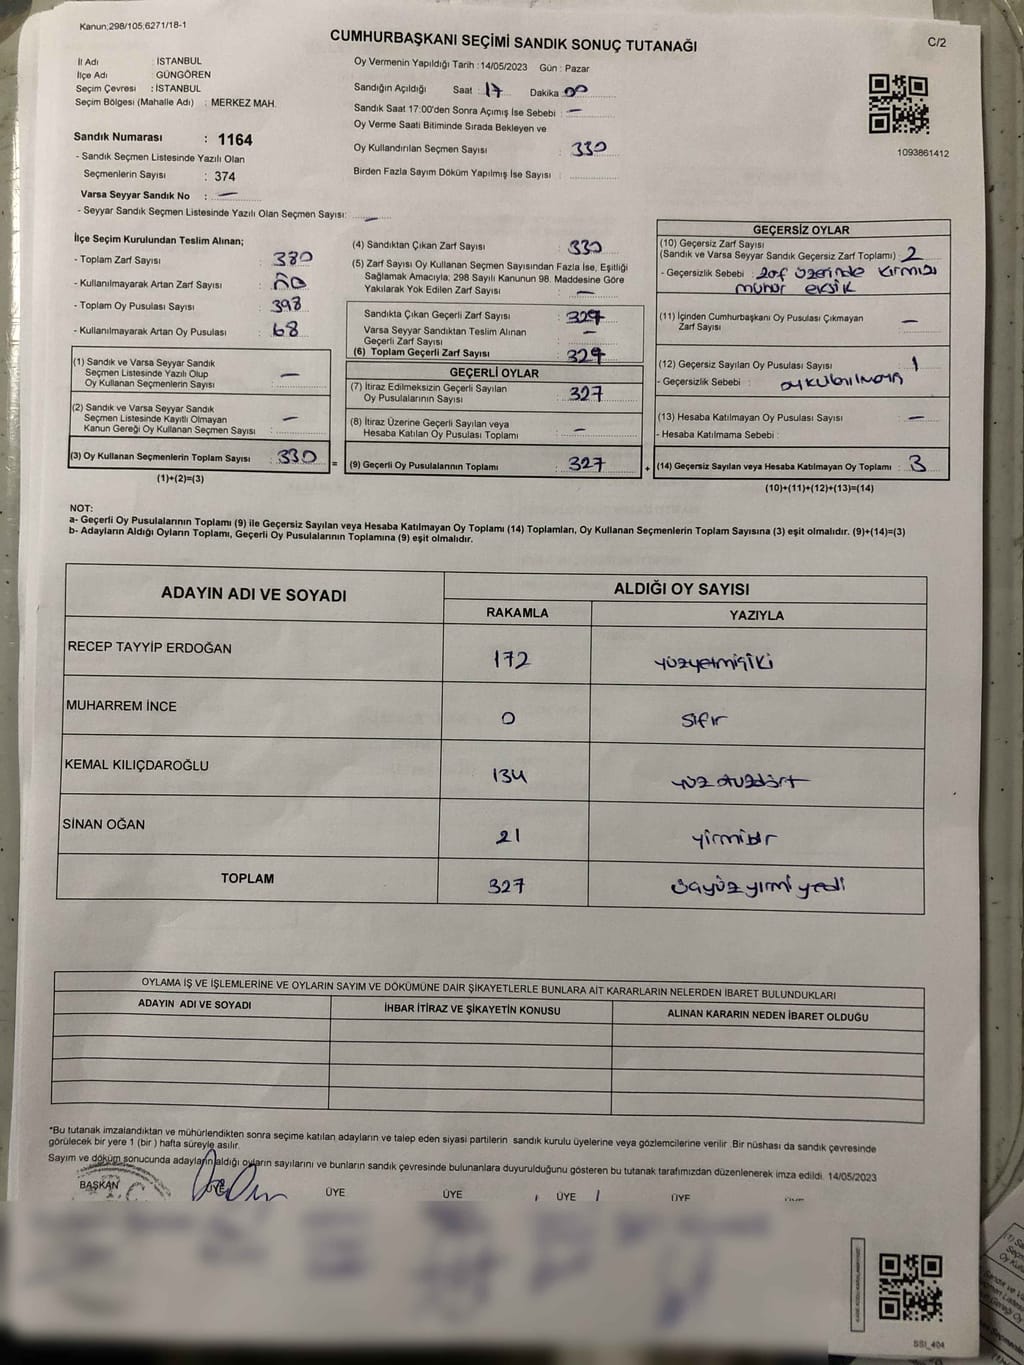 Kanun;298/105;6271/18-1
CUMHURBAŞKANI SEÇİMİ SANDIK SONUÇ TUTANAĞI
C/2
İl Adı : İSTANBUL
İlçe Adı : GÜNGÖREN
Seçim Çevresi : İSTANBUL
Seçim Bölgesi (Mahalle Adı) : MERKEZ MAH.
Oy Vermenin Yapıldığı Tarih :14/05/2023 Gün : Pazar
Sandığın Açıldığı Saat : 17 Dakika 00
Sandık Saat 17:00'den Sonra Açımış İse Sebebi : —
Oy Verme Saati Bitiminde Sırada Bekleyen ve
Oy Kullandırılan Seçmen Sayısı : 330
Birden Fazla Sayım Döküm Yapılmış İse Sayısı :
1093861412
Sandık Numarası : 1164
- Sandık Seçmen Listesinde Yazılı Olan
Seçmenlerin Sayısı : 374
Varsa Seyyar Sandık No : —
- Seyyar Sandık Seçmen Listesinde Yazılı Olan Seçmen Sayısı: —
İlçe Seçim Kurulundan Teslim Alınan;
- Toplam Zarf Sayısı : 380
- Kullanılmayarak Artan Zarf Sayısı :
- Toplam Oy Pusulası Sayısı : 398
- Kullanılmayarak Artan Oy Pusulası : 68
(1) Sandık ve Varsa Seyyar Sandık
Seçmen Listesinde Yazılı Olup
Oy Kullanan Seçmenlerin Sayısı : —
(2) Sandık ve Varsa Seyyar Sandık
Seçmen Listesinde Kayıtlı Olmayan
Kanun Gereği Oy Kullanan Seçmen Sayısı : —
(3) Oy Kullanan Seçmenlerin Toplam Sayısı : 330
(1)+(2)=(3)
=
(4) Sandıktan Çıkan Zarf Sayısı : 330
(5) Zarf Sayısı Oy Kullanan Seçmen Sayısından Fazla İse, Eşitliği
Sağlamak Amacıyla; 298 Sayılı Kanunun 98. Maddesine Göre
Yakılarak Yok Edilen Zarf Sayısı : —
Sandıkta Çıkan Geçerli Zarf Sayısı :
Varsa Seyyar Sandıktan Teslim Alınan
Geçerli Zarf Sayısı : —
(6) Toplam Geçerli Zarf Sayısı :
GEÇERLİ OYLAR
(7) İtiraz Edilmeksizin Geçerli Sayılan
Oy Pusulalarının Sayısı : 327
(8) İtiraz Üzerine Geçerli Sayılan veya
Hesaba Katılan Oy Pusulası Toplamı : —
(9) Geçerli Oy Pusulalarının Toplamı : 327
+
GEÇERSİZ OYLAR
(10) Geçersiz Zarf Sayısı
(Sandık ve Varsa Seyyar Sandık Geçersiz Zarf Toplamı) : 2
- Geçersizlik Sebebi : zarf üzerinde kırmızı
mühür eksik
(11) İçinden Cumhurbaşkanı Oy Pusulası Çıkmayan
Zarf Sayısı : —
(12) Geçersiz Sayılan Oy Pusulası Sayısı : 1
- Geçersizlik Sebebi :
(13) Hesaba Katılmayan Oy Pusulası Sayısı : —
- Hesaba Katılmama Sebebi :
(14) Geçersiz Sayılan veya Hesaba Katılmayan Oy Toplamı : 3
(10)+(11)+(12)+(13)=(14)
NOT:
a- Geçerli Oy Pusulalarının Toplamı (9) ile Geçersiz Sayılan veya Hesaba Katılmayan Oy Toplamı (14) Toplamları, Oy Kullanan Seçmenlerin Toplam Sayısına (3) eşit olmalıdır. (9)+(14)=(3)
b- Adayların Aldığı Oyların Toplamı, Geçerli Oy Pusulalarının Toplamına (9) eşit olmalıdır.
ADAYIN ADI VE SOYADI
ALDIĞI OY SAYISI
RAKAMLA
YAZIYLA
RECEP TAYYİP ERDOĞAN 172 yüzyetmişiki
MUHARREM İNCE 0 sıfır
KEMAL KILIÇDAROĞLU 134 yüz otuzdört
SİNAN OĞAN 21 yirmibir
TOPLAM 327 üçyüz yirmi yedi
OYLAMA İŞ VE İŞLEMLERİNE VE OYLARIN SAYIM VE DÖKÜMÜNE DAİR ŞİKAYETLERLE BUNLARA AİT KARARLARIN NELERDEN İBARET BULUNDUKLARI
ADAYIN ADI VE SOYADI
İHBAR İTİRAZ VE ŞİKAYETİN KONUSU
ALINAN KARARIN NEDEN İBARET OLDUĞU
*Bu tutanak imzalandıktan ve mühürlendikten sonra seçime katılan adayların ve talep eden siyasi partilerin sandık kurulu üyelerine veya gözlemcilerine verilir .Bir nüshası da sandık çevresinde
görülecek bir yere 1 (bir ) hafta süreyle asılır.
Sayım ve döküm sonucunda adayların aldığı oyların sayılarını ve bunların sandık çevresinde bulunanlara duyurulduğunu gösteren bu tutanak tarafımızdan düzenlenerek imza edildi. 14/05/2023
BAŞKAN ÜYE ÜYE ÜYE ÜYE ÜYE
SSI_404